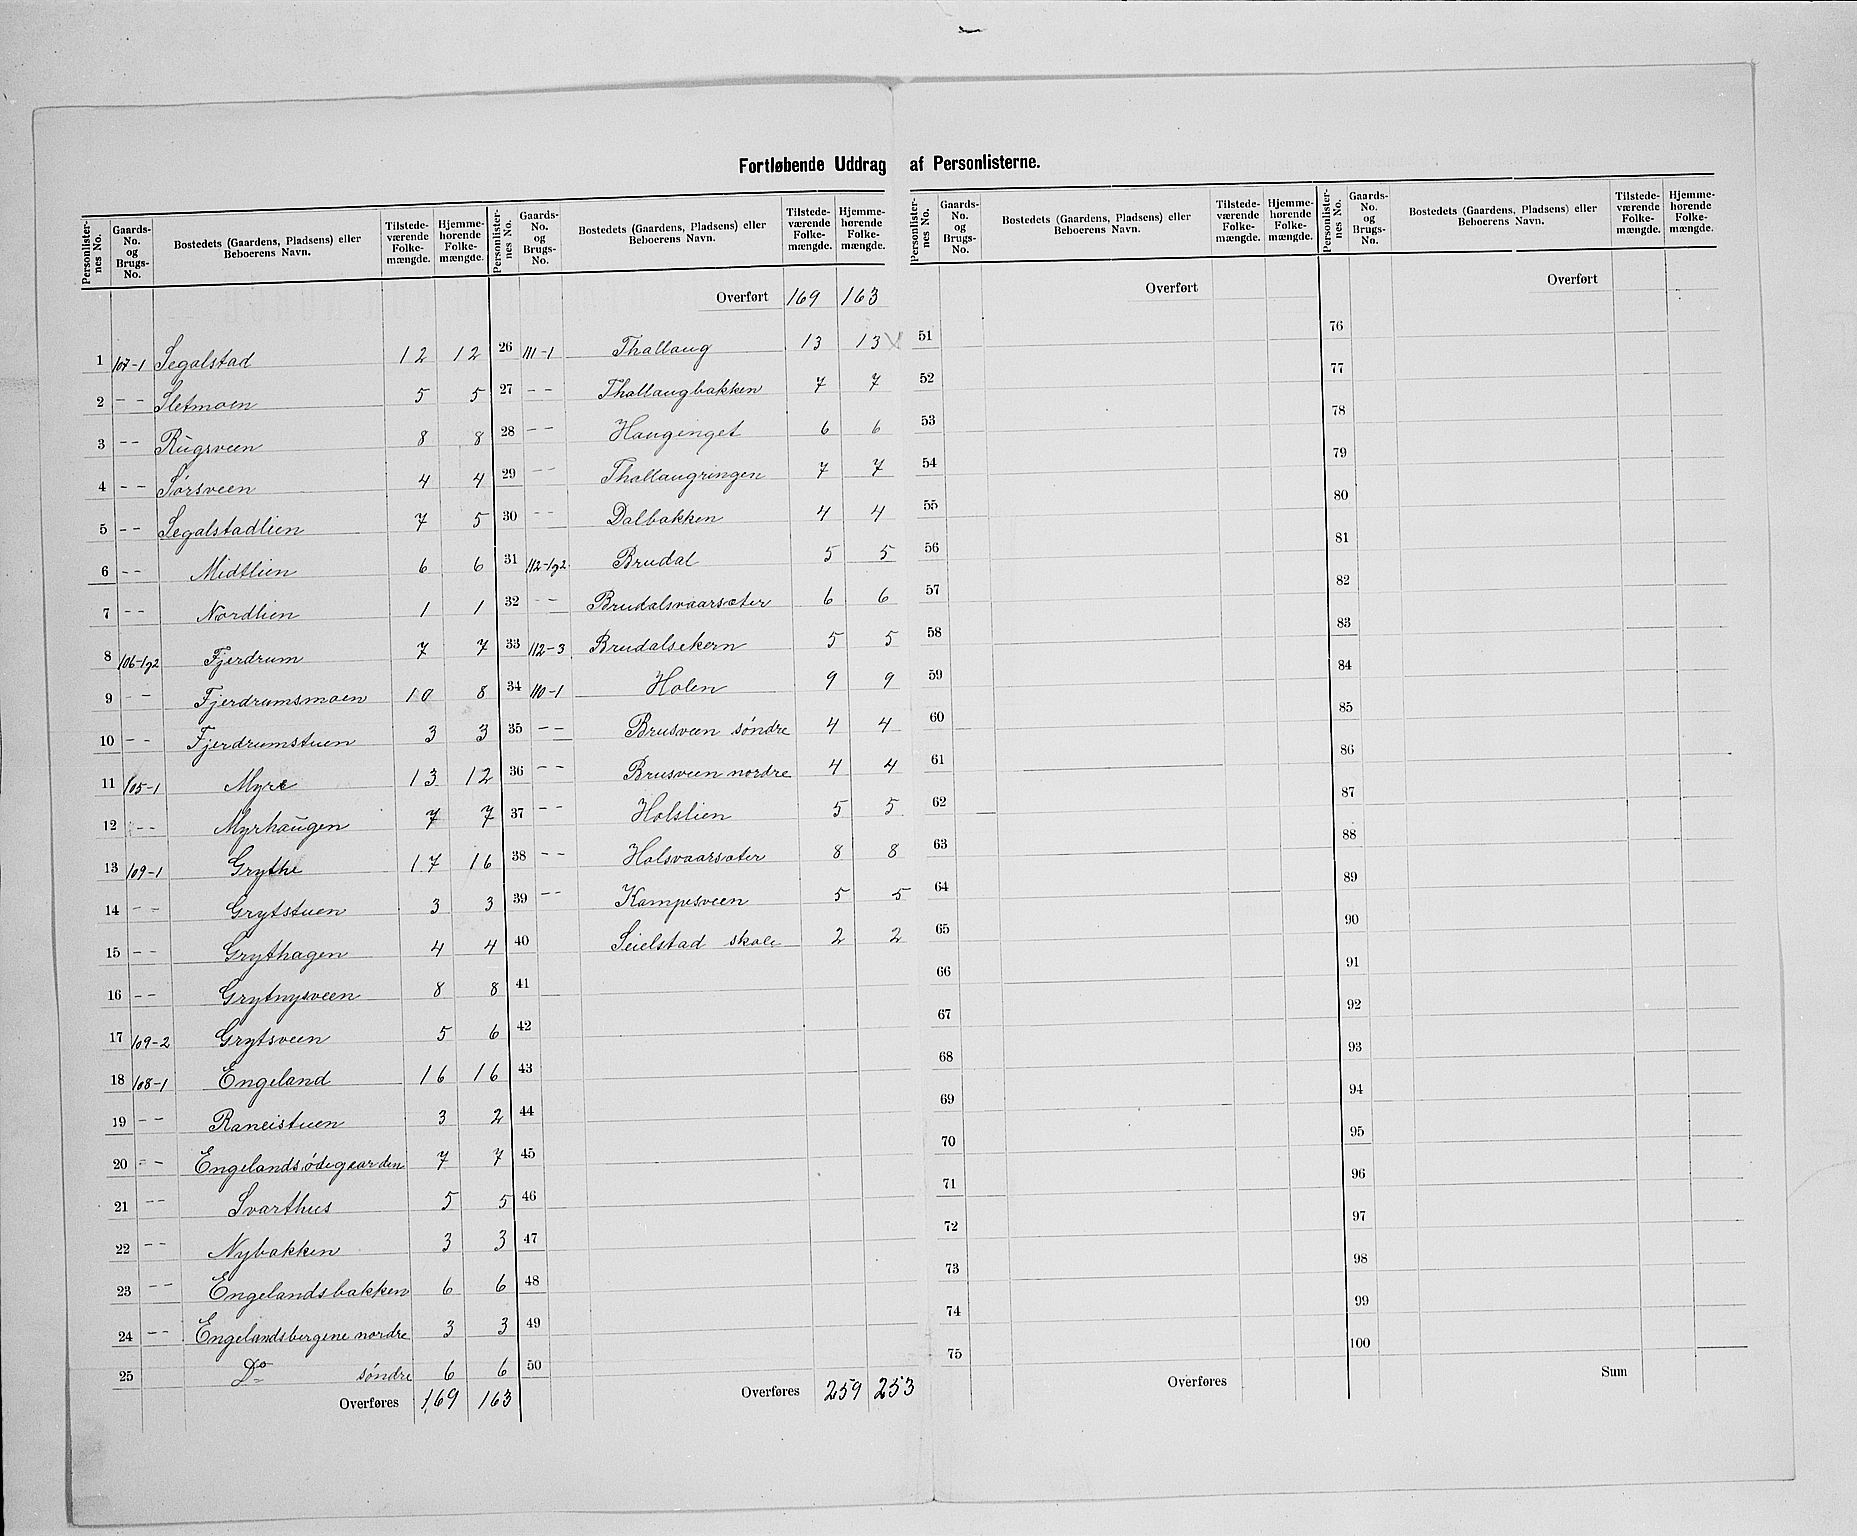 Fortløbende Uddrag af Personlisterne.
Personlisternes No. | Gaards-No. og Brugs-No. | Bostedets (Gaardens, Pladsens) eller Beboerens Navn. | Tilstedeværende Folkemængde. | Hjemmehørende Folkemængde.
1 107-1 Segalstad 12 12
2 - - Sletmoen 5 5
3 - - Rugsveen 8 8
4 - - Sørsveen 4 4
5 - - Segalstadlien 7 5
6 - - Midtlien 6 6
7 - - Nordlien 1 1
8 106-1,2 Fjerdrum 7 7
9 - - Fjerdrumsmoen 10 8
10 - - Fjerdrumstuen 3 3
11 105-1 Myre 13 12
12 - - Myrhaugen 7 7
13 109-1 Grythe 17 16
14 - - Grytstuen 3 3
15 - - Grythagen 4 4
16 - - Grytnysveen 8 8
17 109-2 Grytsveen 5 6
18 108-1 Engeland 16 16
19 - - Raneistuen 3 2
20 - - Engelandsødegaarden 7 7
21 - - Svarthus 5 5
22 - - Nybakken 3 3
23 - - Engelandsbakken 6 6
24 - - Engelandsbergene nordre 3 3
25 Do søndre 6 6
Overføres 169 163
Personlisternes No. | Gaards-No. og Brugs-No. | Bostedets (Gaardens, Pladsens) eller Beboerens Navn. | Tilstedeværende Folkemængde. | Hjemmehørende Folkemængde.
Overført 169 163
26 111-1 Thallaug 13 13
27 - - Thallaugbakken 7 7
28 - - Haugenget 6 6
29 - - Thallaugringen 7 7
30 - - Dalbakken 4 4
31 112-1,2 Brudal 5 5
32 - - Brudalsvaarsæter 6 6
33 112-3 Brudalsekern 5 5
34 110-1 Holen 9 9
35 - - Brusveen søndre 4 4
36 - - Brusveen nordre 4 4
37 - - Holslien 5 5
38 - - Holsvaarsæter 8 8
39 - - Kampesveen 5 5
40 Seielstad skole 2 2
41
42
43
44
45
46
47
48
49
50
Overføres 259 253
Personlisternes No. | Gaards-No. og Brugs-No. | Bostedets (Gaardens, Pladsens) eller Beboerens Navn. | Tilstedeværende Folkemængde. | Hjemmehørende Folkemængde.
Overført
51
52
53
54
55
56
57
58
59
60
61
62
63
64
65
66
67
68
69
70
71
72
73
74
75
Overføres
Personlisternes No. | Gaards-No. og Brugs-No. | Bostedets (Gaardens, Pladsens) eller Beboerens Navn. | Tilstedeværende Folkemængde. | Hjemmehørende Folkemængde.
Overført
76
77
78
79
80
81
82
83
84
85
86
87
88
89
90
91
92
93
94
95
96
97
98
99
100
Sum